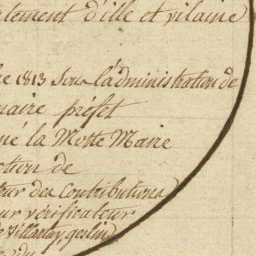 rtement d'ille et vilaine
re 1813 Sous l'administration de
naire préfet
né la Motte Marie
ction de
teur des Contributions
eur vérificateur
Villarlay, geslin